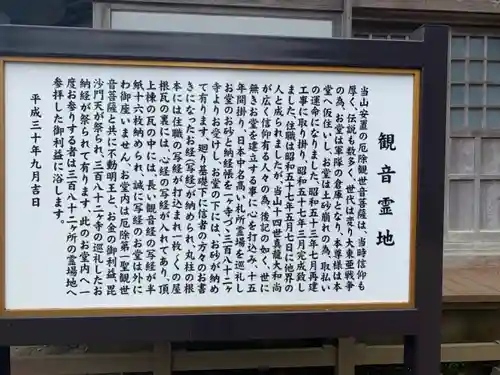 観音霊地
当山安置の厄除観世音菩薩は、当時信仰も
厚く、伝説も数多く、世代は変り、大東亜戦争
の為、お堂は軍隊の倉庫となり、本尊様は本
堂へ仮住いし、お堂は土砂崩れの為、取払い
の運命になりました。昭和五十三年七月再建
工事に取り掛り、昭和五十七年三月完成致し
ました。住職は昭和五十七年五月七日に他界の
人と成られましたが、当山十四世真龍大和尚
が広く信仰される人々の為、後記の如く、世に
無きお堂を建立する事に心血を打込み、十五
年間掛り、日本中名高い札所霊場を巡礼し
お堂のお砂と納経帳を一ヶ寺づつ三百八十二ヶ
寺よりお受けし、お堂の下には、お砂が納め
て有ります。廻り基礎下に信者の方々のお書
きになったお経(写経)が納められ、丸柱の根
本には住職の写経が打込まれ一枚く の屋
根瓦の裏には、心経の写経が入れてあり、頂
上棟の瓦の中には、長い観音経の写経が半
紙十六枚納められ、誠に写経のお堂は外に
わ御座いません。お堂内は厄除第一聖観世
音菩薩と共に不動明王と、お金の御利益、毘
沙門天が祭られ、三百八十二ヶ寺の巡礼したお
納経が祭られて有ります。此のお堂内に一
度お参りする者は三百八十二ヶ所の霊場地へ
参拝した御利益に浴します。
平成三十年九月吉日